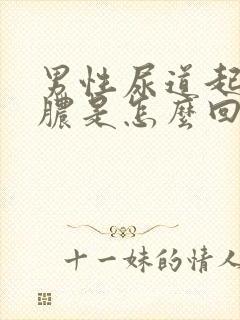 男性尿道起
膿是怎麼回
十一妹的情人